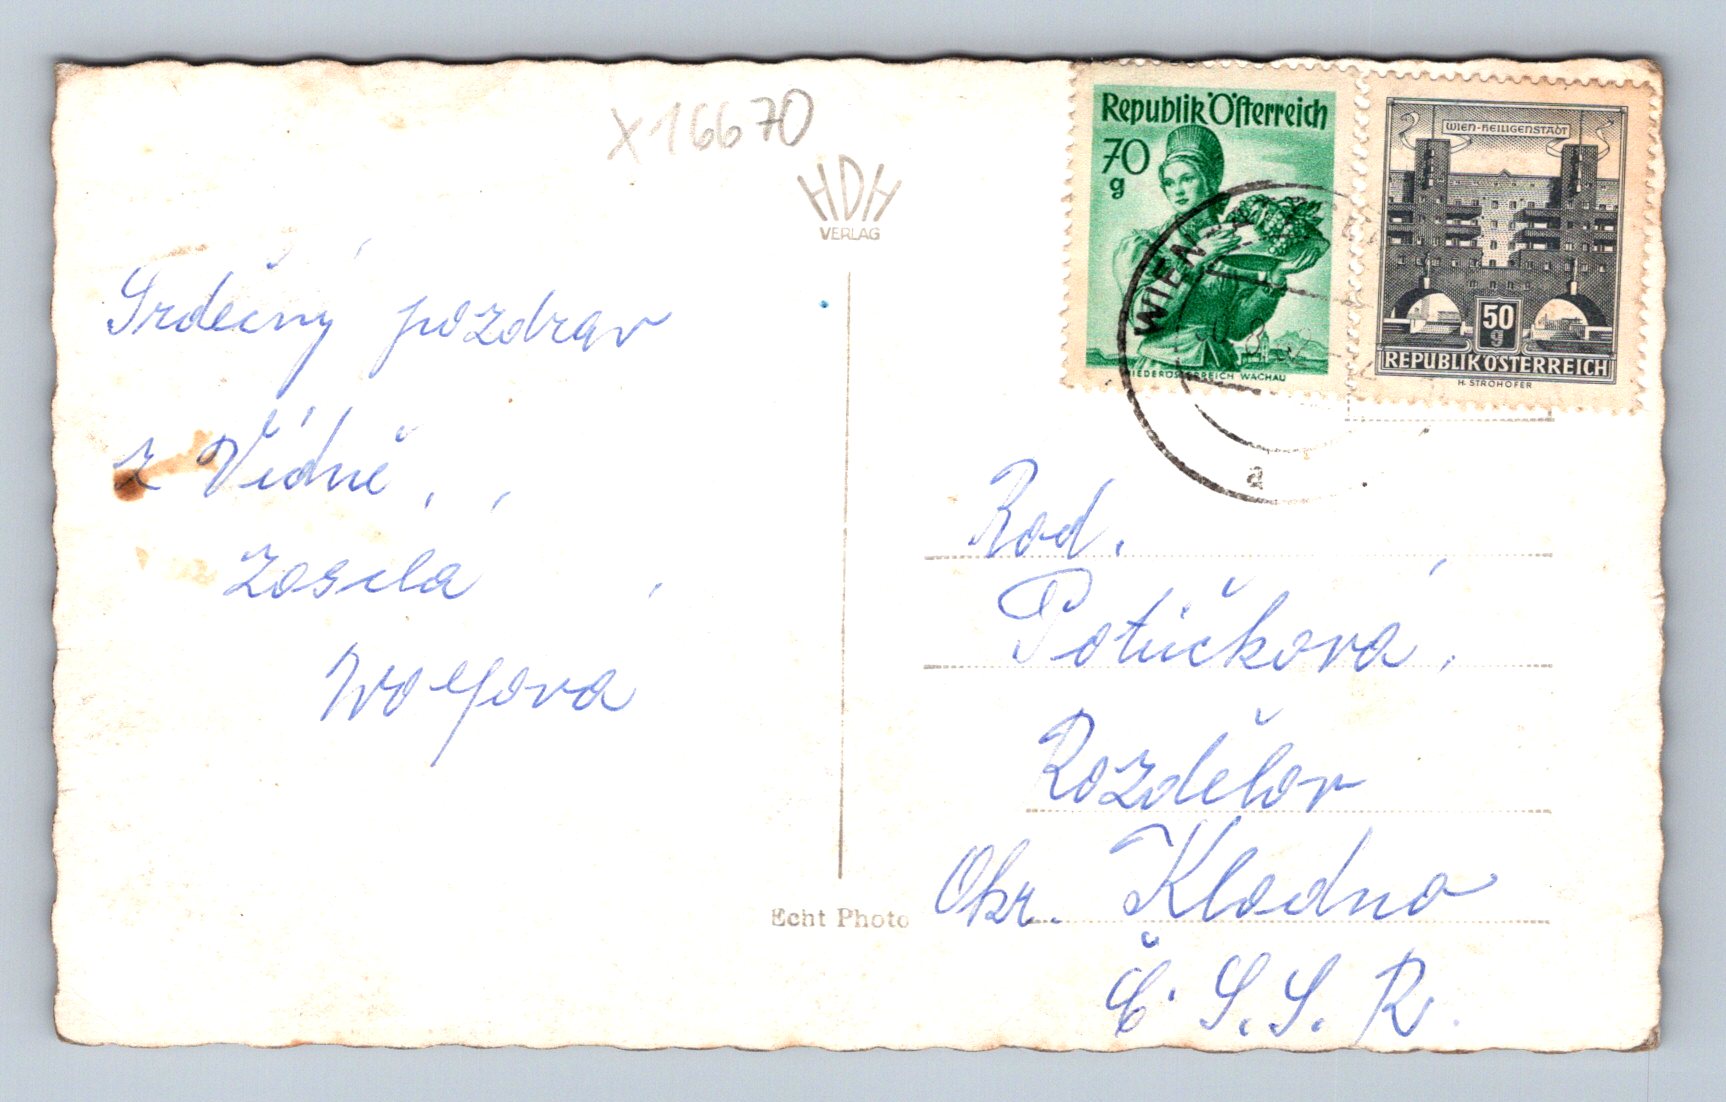 X16670
HDH
VERLAG
Srdečný pozdrav
z Vídně,
zasílá
Wolfova
Echt Photo
Republik Österreich
70
g
NIEDERÖSTERREICH WACHAU
WIEN-HEILIGENSTADT
50
g
REPUBLIK ÖSTERREICH
H. STROHOFER
WIEN
a
Rod.
Potůčková,
Rozdělov
Okr. Kladno
Č. S. S. R.